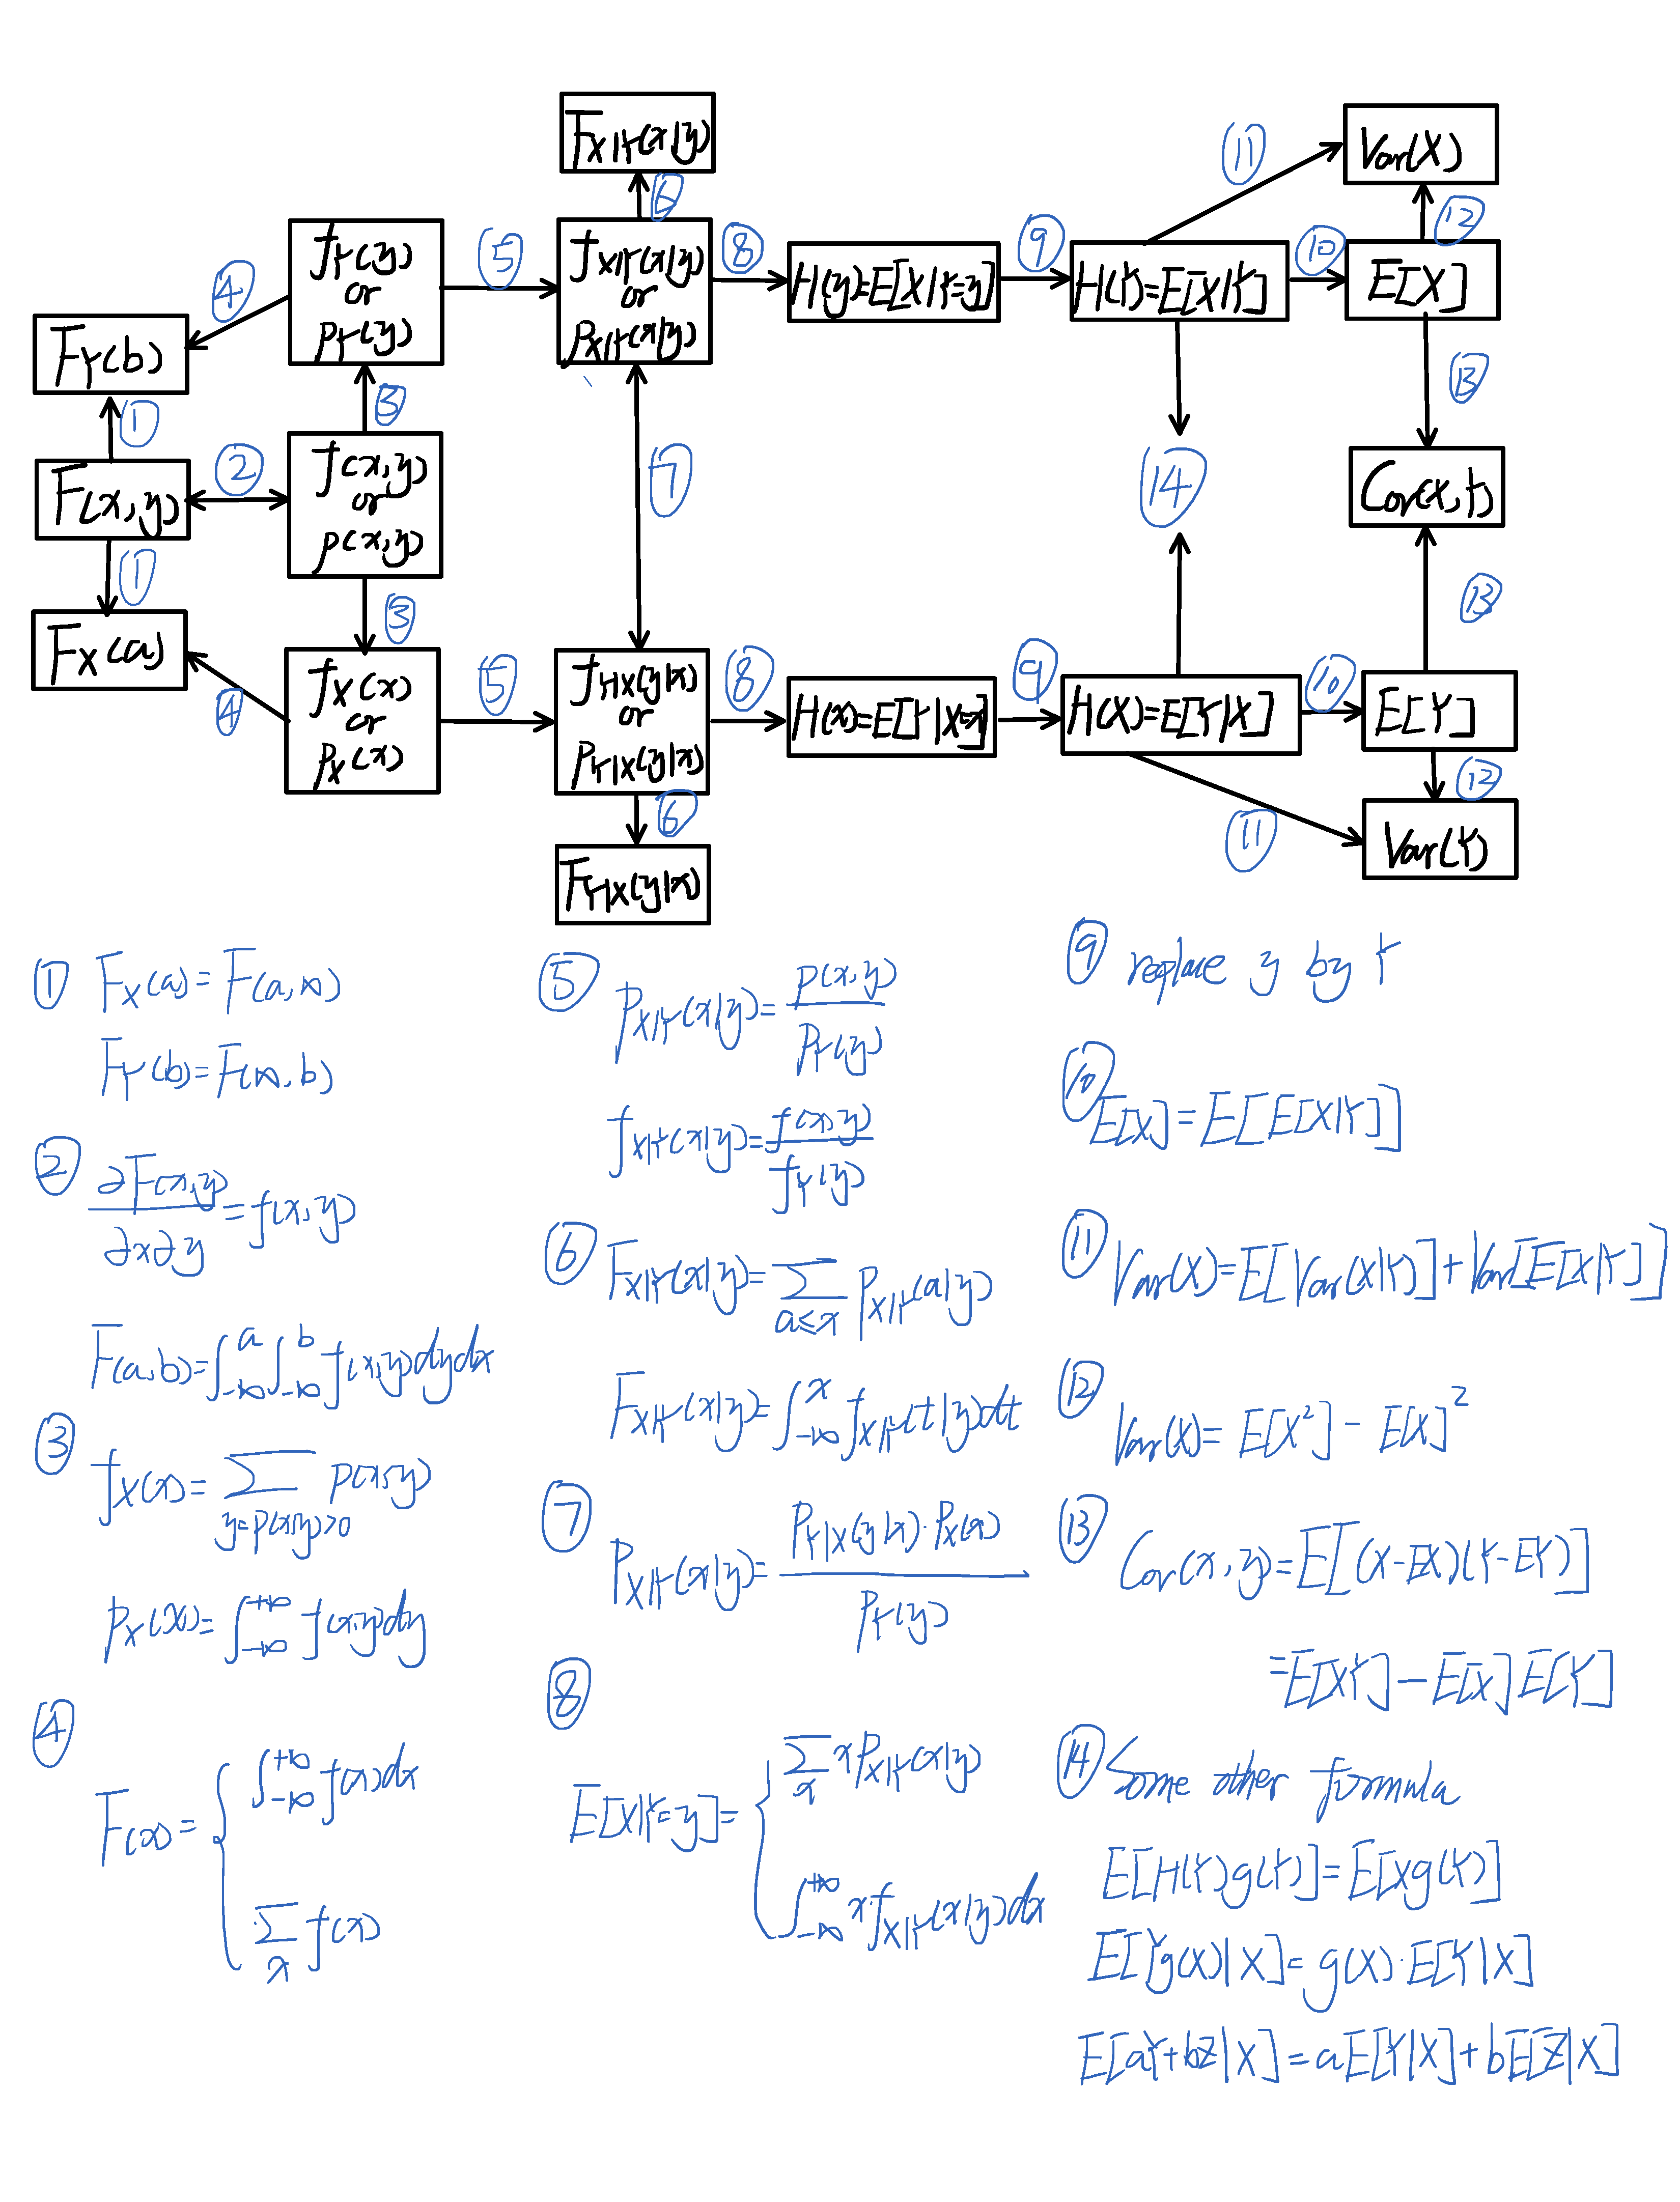 F_{X|Y}(x|y)
Var(X)
⑪
⑥
⑫
f_Y(y)
or
p_Y(y)
④
⑤
f_{X|Y}(x|y)
or
p_{X|Y}(x|y)
⑧
H(y)=E[X|Y=y]
⑨
H(Y)=E[X|Y]
⑩
E[X]
F_Y(b)
①
③
⑬
F(x,y)
②
f(x,y)
or
p(x,y)
⑦
⑭
Cov(X,Y)
①
③
⑬
F_X(a)
④
f_X(x)
or
p_X(x)
⑤
f_{Y|X}(y|x)
or
p_{Y|X}(y|x)
⑧
H(x)=E[Y|X=x]
⑨
H(X)=E[Y|X]
⑩
E[Y]
⑥
⑪
⑫
F_{Y|X}(y|x)
Var(Y)
① F_X(a)=F(a,∞)
F_Y(b)=F(∞,b)
② ∂F(x,y)/∂x∂y = f(x,y)
F(a,b)=∫_{-∞}^{a}∫_{-∞}^{b} f(x,y)dydx
③ f_X(x)=∑_{y=p(x,y)>0} p(x,y)
p_X(x)=∫_{-∞}^{+∞} f(x,y)dy
④
F(x)= { ∫_{-∞}^{+∞} f(x)dx
∑_x f(x)
⑤ p_{X|Y}(x|y)=p(x,y)/p_Y(y)
f_{X|Y}(x|y)=f(x,y)/f_Y(y)
⑥ F_{X|Y}(x|y)=∑_{a≤x} p_{X|Y}(a|y)
F_{X|Y}(x|y)=∫_{-∞}^{x} f_{X|Y}(t|y)dt
⑦ p_{X|Y}(x|y)=p_{Y|X}(y|x)·p_X(x)/p_Y(y)
⑧
E[X|Y=y]= { ∑_x x p_{X|Y}(x|y)
∫_{-∞}^{+∞} x·f_{X|Y}(x|y)dx
⑨ replace y by Y
⑩ E[X]=E[E[X|Y]]
⑪ Var(X)=E[Var(X|Y)]+Var[E[X|Y]]
⑫ Var(X)=E[X²]-E[X]²
⑬ Cov(x,y)=E[(X-EX)(Y-EY)]
=E[XY]-E[X]E[Y]
⑭ Some other formula
E[H(Y)g(Y)]=E[Xg(Y)]
E[Yg(X)|X]=g(X)·E[Y|X]
E[aY+bZ|X]=aE[Y|X]+bE[Z|X]